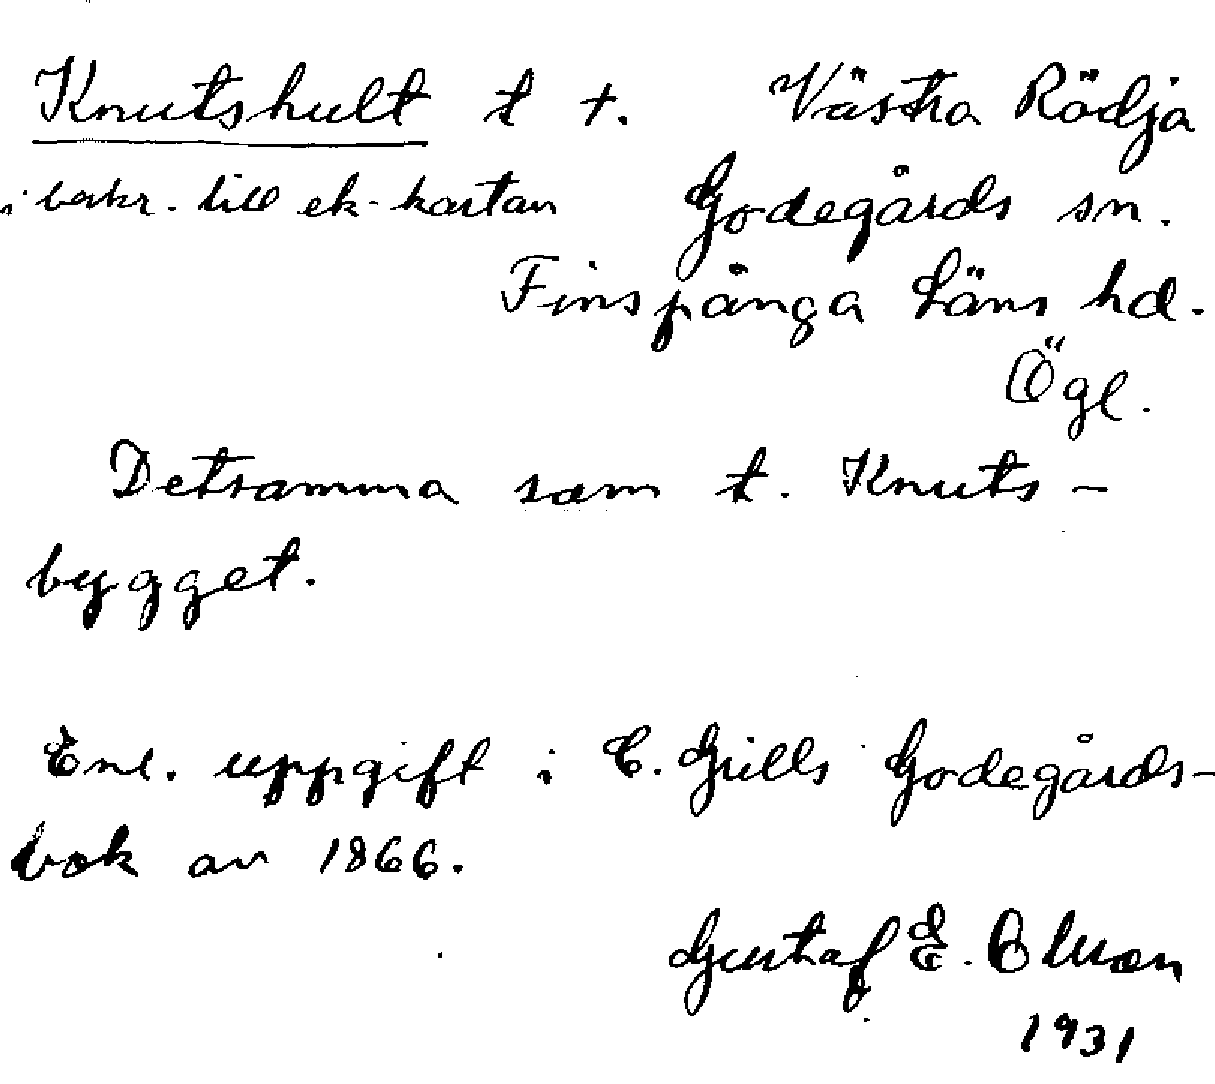 Knutshult t †. Västra Rödja
i beskr. till ek-kartan Godegårds sn.
Finspånga Läns hd.
Ögl.
Detsamma som t. Knuts-
bygget.
Enl. uppgift i C. Grills Godegårds-
bok av 1866.
Gustaf E. Olsson
1931